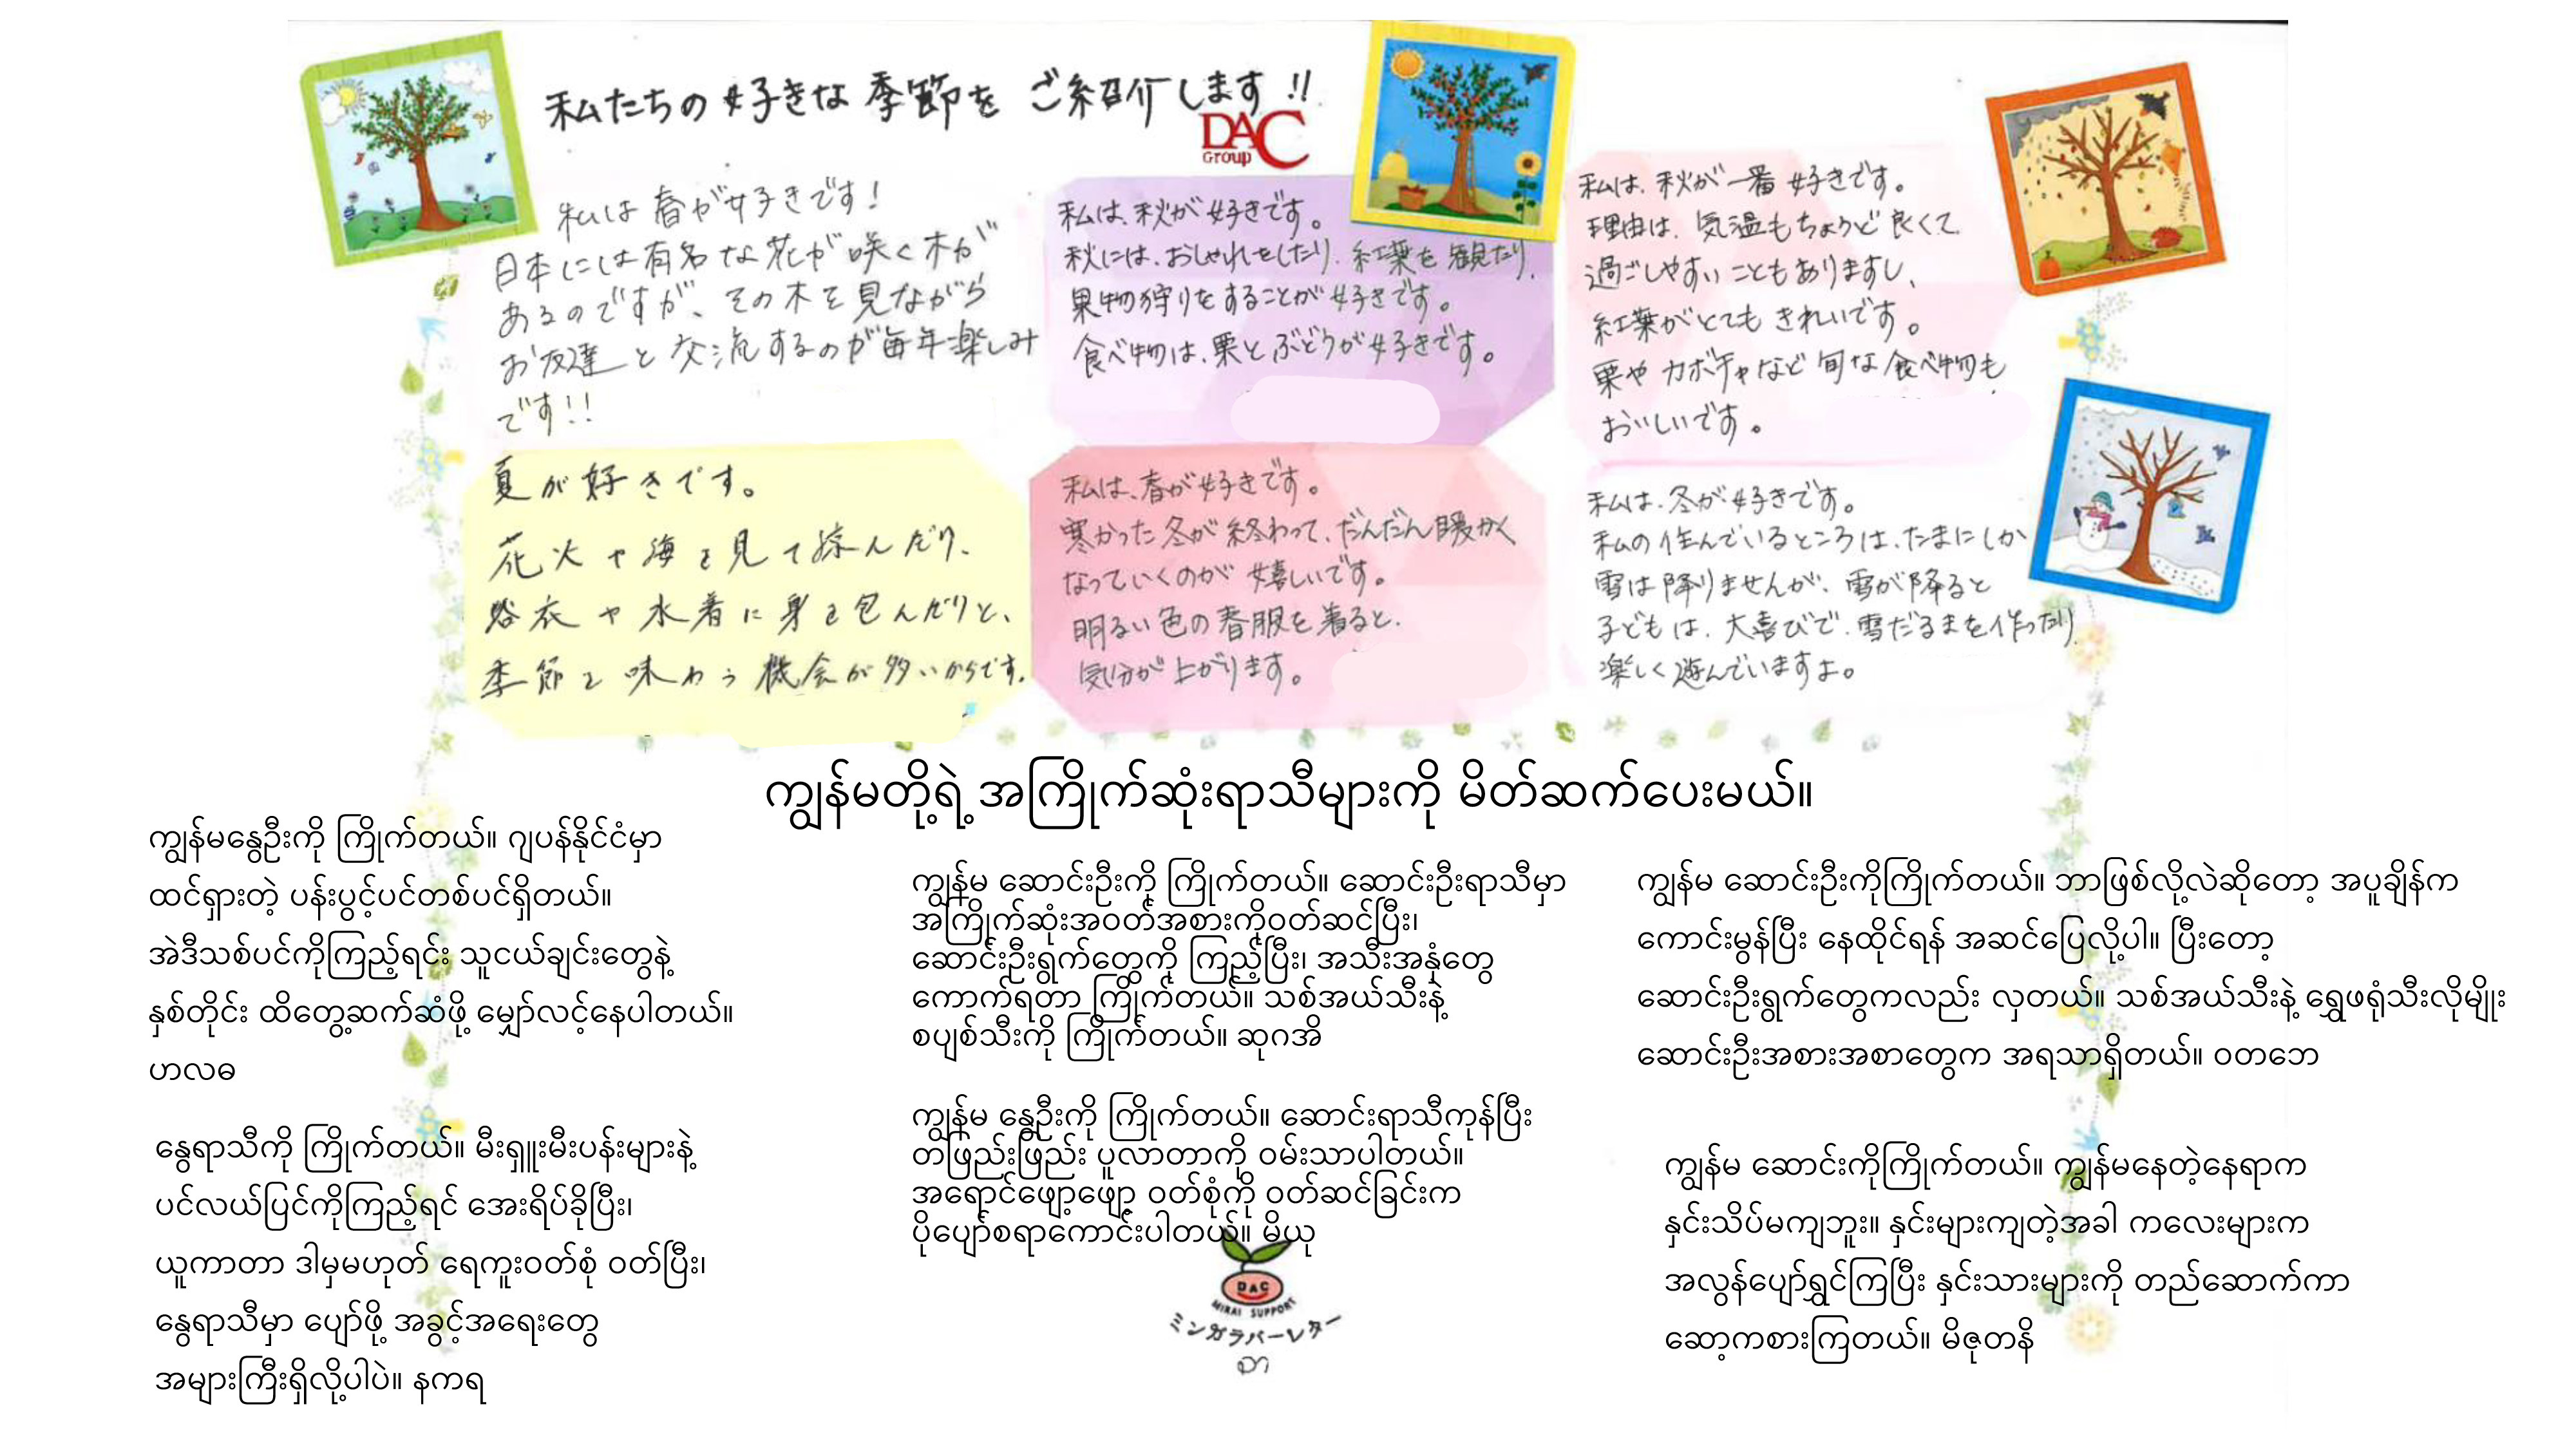 私たちの好きな季節を ご紹介します!!
DAC
Group
私は春が好きです!
日本には有名な花が咲く木が
あるのですが、その木を見ながら
お友達と交流するのが毎年楽しみ
です!!
私は、秋が好きです。
秋には、おしゃれをしたり、紅葉を観たり、
果物狩りをすることが好きです。
食べ物は、栗とぶどうが好きです。
私は、秋が一番好きです。
理由は、気温もちょうど良くて
過ごしやすいこともありますし、
紅葉がとてもきれいです。
栗やカボチャなど旬な食べ物も
おいしいです。
夏が好きです。
花火や海を見て涼んだり、
浴衣や水着に身を包んだりと、
季節を味わう機会が多いからです。
私は、春が好きです。
寒かった冬が終わって、だんだん暖かく
なっていくのが嬉しいです。
明るい色の春服を着ると、
気分が上がります。
私は、冬が好きです。
私の住んでいるところは、たまにしか
雪は降りませんが、雪が降ると
子どもは、大喜びで、雪だるまを作ったり
楽しく遊んでいますよ。
ကျွန်မတို့ရဲ့အကြိုက်ဆုံးရာသီများကို မိတ်ဆက်ပေးမယ်။
ကျွန်မနွေဦးကို ကြိုက်တယ်။ ဂျပန်နိုင်ငံမှာ
ထင်ရှားတဲ့ ပန်းပွင့်ပင်တစ်ပင်ရှိတယ်။
အဲဒီသစ်ပင်ကိုကြည့်ရင်း သူငယ်ချင်းတွေနဲ့
နှစ်တိုင်း ထိတွေ့ဆက်ဆံဖို့ မျှော်လင့်နေပါတယ်။
ဟလဓ
ကျွန်မ ဆောင်းဦးကို ကြိုက်တယ်။ ဆောင်းဦးရာသီမှာ
အကြိုက်ဆုံးအဝတ်အစားကိုဝတ်ဆင်ပြီး၊
ဆောင်းဦးရွက်တွေကို ကြည့်ပြီး၊ အသီးအနှံတွေ
ကောက်ရတာ ကြိုက်တယ်။ သစ်အယ်သီးနဲ့
စပျစ်သီးကို ကြိုက်တယ်။ ဆုဂအိ
ကျွန်မ ဆောင်းဦးကိုကြိုက်တယ်။ ဘာဖြစ်လို့လဲဆိုတော့ အပူချိန်က
ကောင်းမွန်ပြီး နေထိုင်ရန် အဆင်ပြေလို့ပါ။ ပြီးတော့
ဆောင်းဦးရွက်တွေကလည်း လှတယ်။ သစ်အယ်သီးနဲ့ ရွှေဖရုံသီးလိုမျိုး
ဆောင်းဦးအစားအစာတွေက အရသာရှိတယ်။ ဝတဘေ
နွေရာသီကို ကြိုက်တယ်။ မီးရှူးမီးပန်းများနဲ့
ပင်လယ်ပြင်ကိုကြည့်ရင် အေးရိပ်ခိုပြီး၊
ယူကာတာ ဒါမှမဟုတ် ရေကူးဝတ်စုံ ဝတ်ပြီး၊
နွေရာသီမှာ ပျော်ဖို့ အခွင့်အရေးတွေ
အများကြီးရှိလို့ပါပဲ။ နကရ
ကျွန်မ နွေဦးကို ကြိုက်တယ်။ ဆောင်းရာသီကုန်ပြီး
တဖြည်းဖြည်း ပူလာတာကို ဝမ်းသာပါတယ်။
အရောင်ဖျော့ဖျော့ ဝတ်စုံကို ဝတ်ဆင်ခြင်းက
ပိုပျော်စရာကောင်းပါတယ်။ မိယု
ကျွန်မ ဆောင်းကိုကြိုက်တယ်။ ကျွန်မနေတဲ့နေရာက
နှင်းသိပ်မကျဘူး။ နှင်းများကျတဲ့အခါ ကလေးများက
အလွန်ပျော်ရွှင်ကြပြီး နှင်းသားများကို တည်ဆောက်ကာ
ဆော့ကစားကြတယ်။ မိဇုတနိ
DAC
MIRAI SUPPORT
ミンガラバーレター